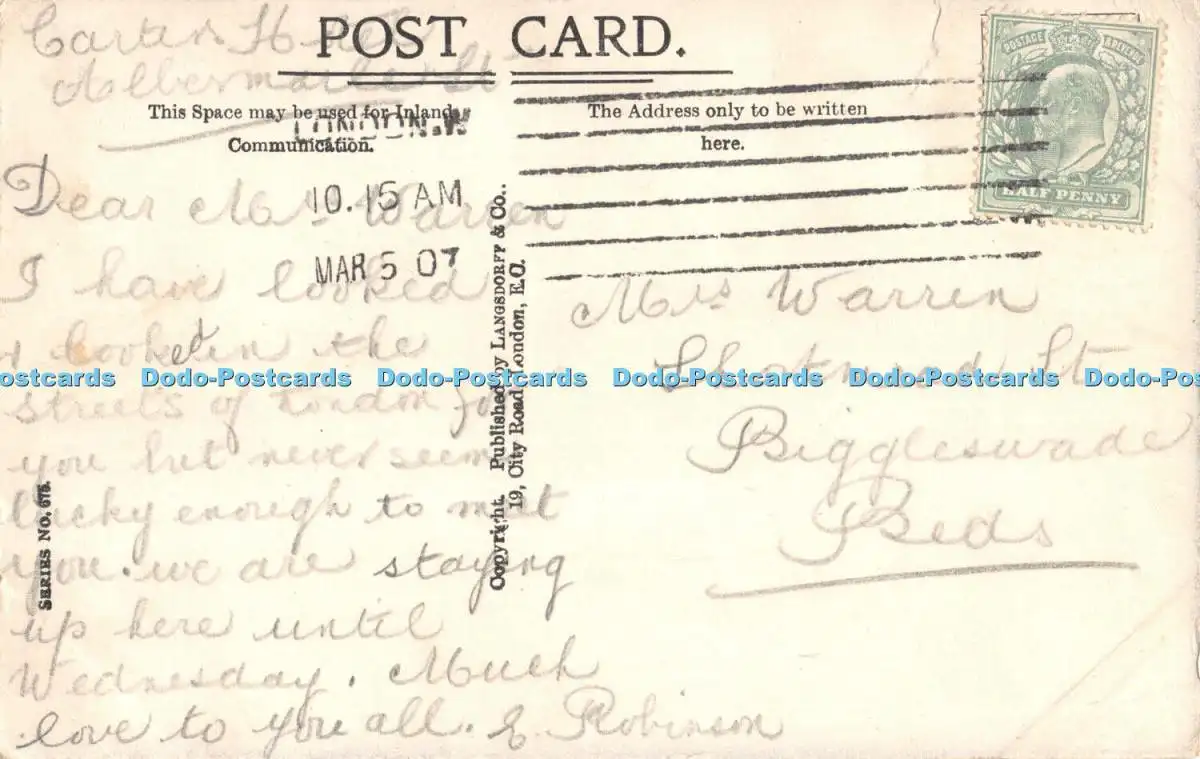 Carter's H
Albermarle St
POST CARD.
This Space may be used for Inland
Communication.
The Address only to be written
here.
LONDON.W
10.15 AM
MAR 5 07
POSTAGE REVENUE
HALF PENNY
Dear Mrs Warren
I have looked
& looked in the
streets of London for
you but never seem
lucky enough to meet
you. we are staying
up here until
Wednesday. Much
love to you all. E. Robinson
SERIES NO. 675.
Copyright. Published by LANGSDORFF & Co..
19, City Road, London, E.C.
Mrs Warren
Shortmead St
Biggleswade
Beds
Dodo-Postcards Dodo-Postcards Dodo-Postcards Dodo-Postcards Dodo-Postcards